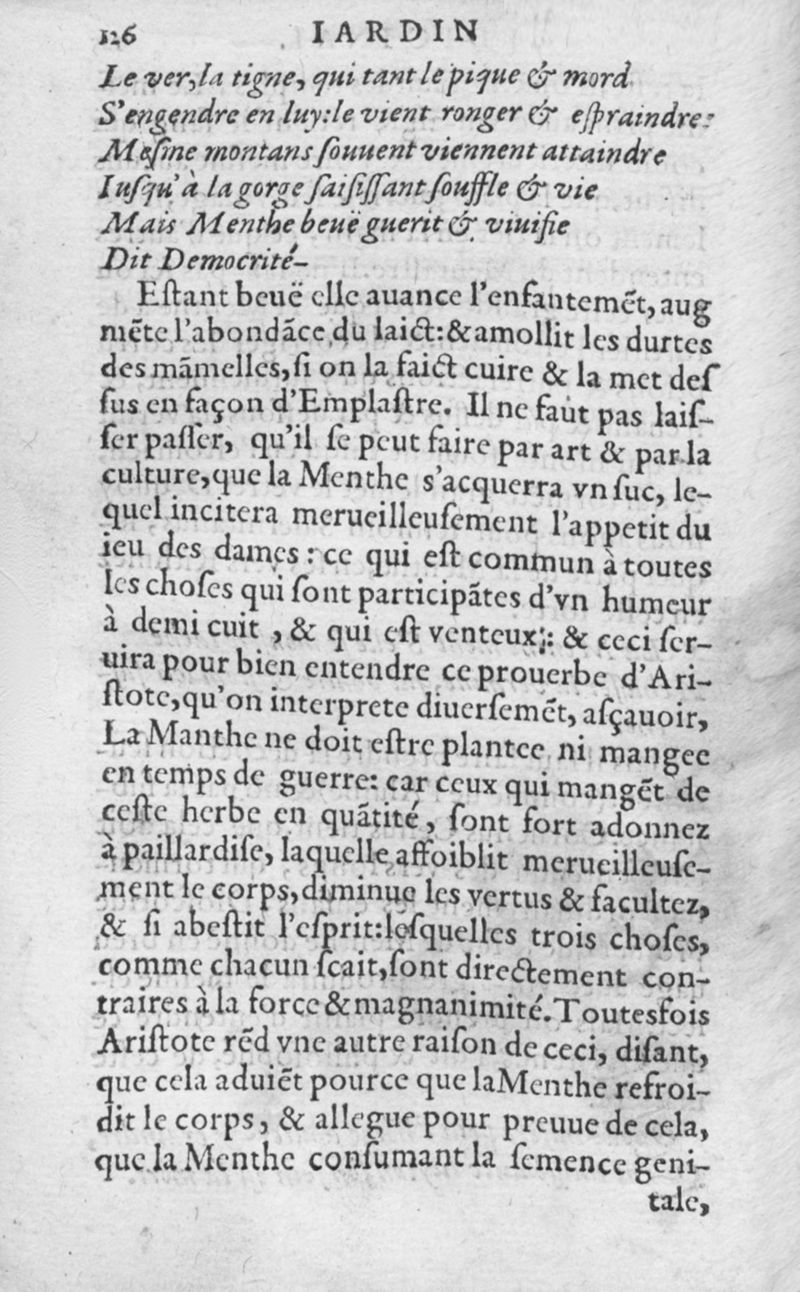 126 IARDIN
Le ver, la tigne, qui tant le pique & mord
S'engendre en luy: le vient ronger & eſpraindre:
Meſme montans ſouuent viennent attaindre
Iuſqu'à la gorge ſaiſiſſant ſouffle & vie
Mais Menthe beuë guerit & viuifie
Dit Democrité-
Eſtant beuë elle auance l'enfantemẽt, aug
mẽte l'abondãce du laict: & amollit les durtes
des mãmelles, ſi on la faict cuire & la met deſ
ſus en façon d'Emplaſtre. Il ne faut pas laiſ-
ſer paſſer, qu'il ſe peut faire par art & par la
culture, que la Menthe s'acquerra vn ſuc, le-
quel incitera merueilleuſement l'appetit du
ieu des dames: ce qui eſt commun à toutes
les choſes qui ſont participãtes d'vn humeur
à demi cuit, & qui eſt venteux;: & ceci ſer-
uira pour bien entendre ce prouerbe d'Ari-
ſtote, qu'on interprete diuerſemẽt, aſçauoir,
La Manthe ne doit eſtre plantee ni mangee
en temps de guerre: car ceux qui mangẽt de
ceſte herbe en quãtité, ſont fort adonnez
à paillardiſe, laquelle affoiblit merueilleuſe-
ment le corps, diminue les vertus & facultez,
& ſi abeſtit l'eſprit: leſquelles trois choſes,
comme chacun ſcait, ſont directement con-
traires à la force & magnanimité. Toutesfois
Ariſtote rẽd vne autre raiſon de ceci, diſant,
que cela aduiẽt pource que la Menthe refroi-
dit le corps, & allegue pour preuue de cela,
que la Menthe conſumant la ſemence geni-
tale,